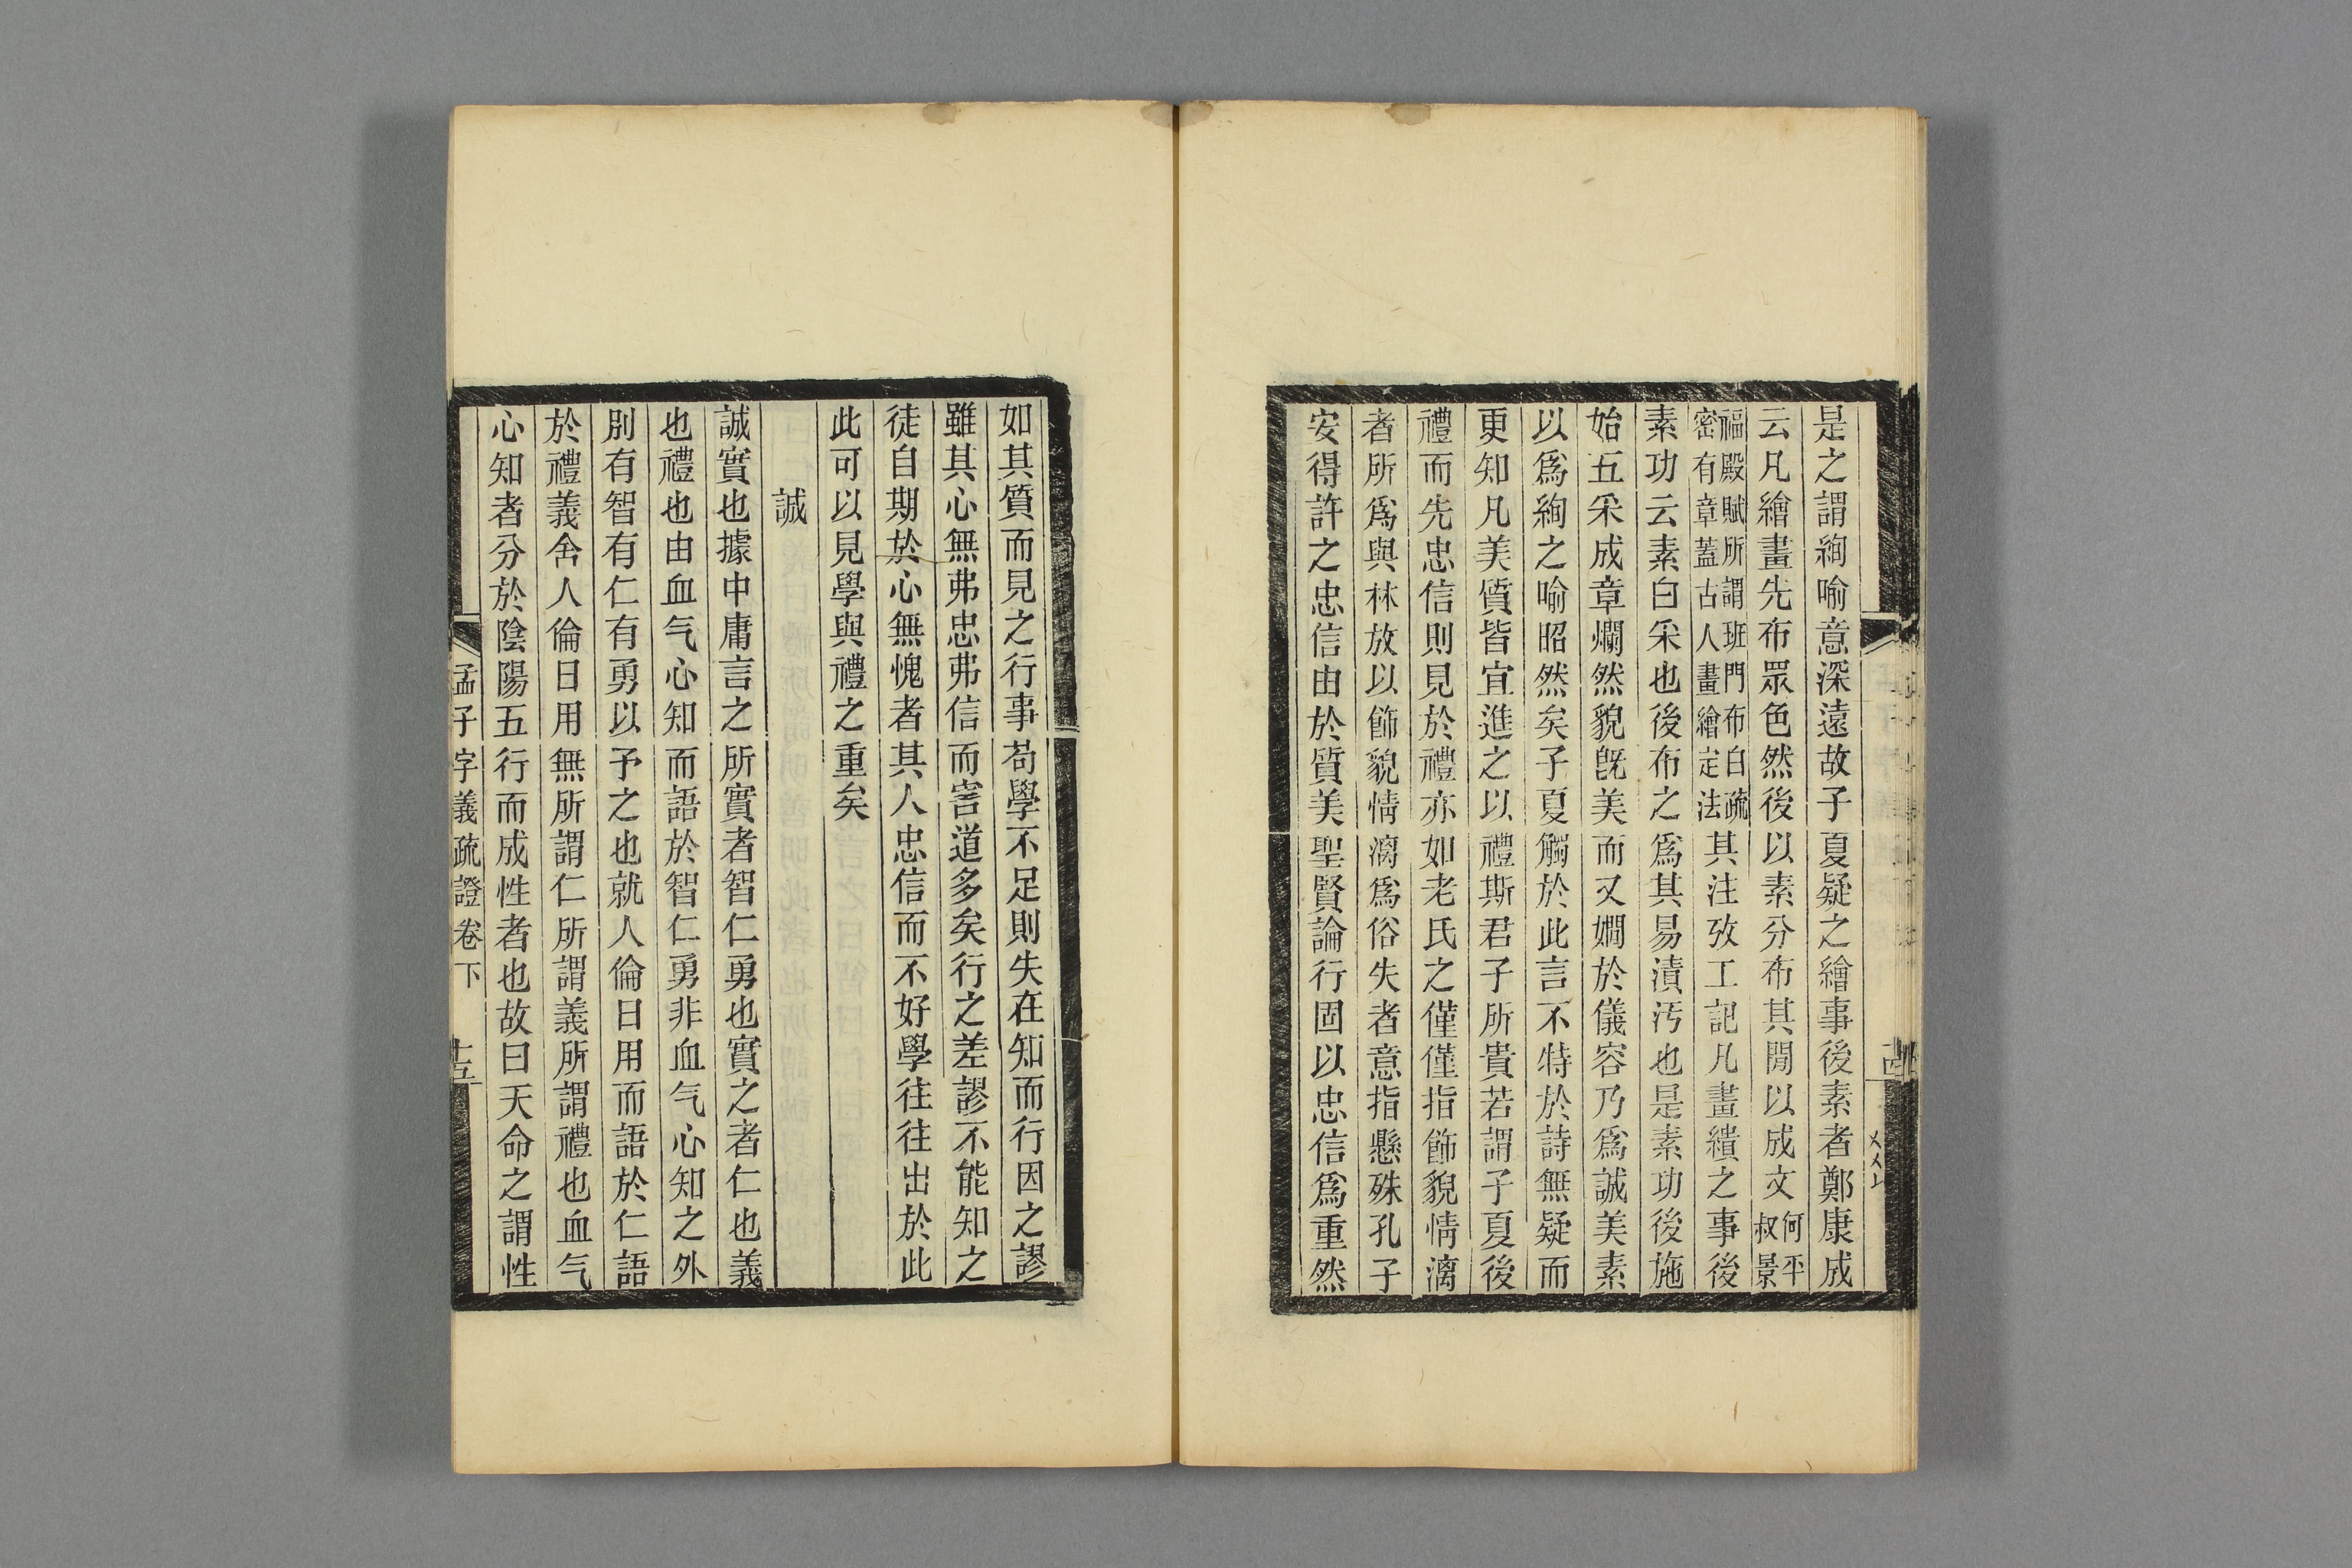 是之謂絢喻意深遠故子夏疑之繪事後素者鄭康成
云凡繪畫先布眾色然後以素分布其閒以成文何平叔景
福殿賦所謂班門布白疏密有章蓋古人畫繪定法其注攷工記凡畫繢之事後
素功云素白采也後布之爲其易漬汚也是素功後施
始五采成章爛然貌旣美而又嫺於儀容乃爲誠美素
以爲絢之喻昭然矣子夏觸於此言不特於詩無疑而
更知凡美質皆宜進之以禮斯君子所貴若謂子夏後
禮而先忠信則見於禮亦如老氏之僅僅指飾貌情漓
者所爲與林放以飾貌情漓爲俗失者意指懸殊孔子
安得許之忠信由於質美聖賢論行固以忠信爲重然
如其質而見之行事苟學不足則失在知而行因之謬
雖其心無弗忠弗信而害道多矣行之差謬不能知之
徒自期於心無愧者其人忠信而不好學往往出於此
此可以見學與禮之重矣
誠
誠實也據中庸言之所實者智仁勇也實之者仁也義
也禮也由血气心知而語於智仁勇非血气心知之外
別有智有仁有勇以予之也就人倫日用而語於仁語
於禮義舍人倫日用無所謂仁所謂義所謂禮也血气
心知者分於陰陽五行而成性者也故曰天命之謂性
孟子字義疏證卷下 十五